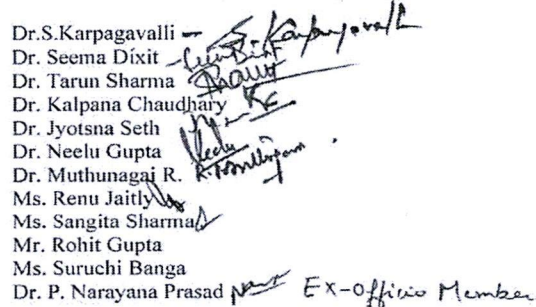 Dr.S.Karpagavalli - S. Karpagavalli
Dr. Seema Dixit -
Dr. Tarun Sharma
Dr. Kalpana Chaudhary
Dr. Jyotsna Seth
Dr. Neelu Gupta Neelu
Dr. Muthunagai R. R. Muthunagai
Ms. Renu Jaitly
Ms. Sangita Sharma
Mr. Rohit Gupta
Ms. Suruchi Banga
Dr. P. Narayana Prasad Ex-Officio Member